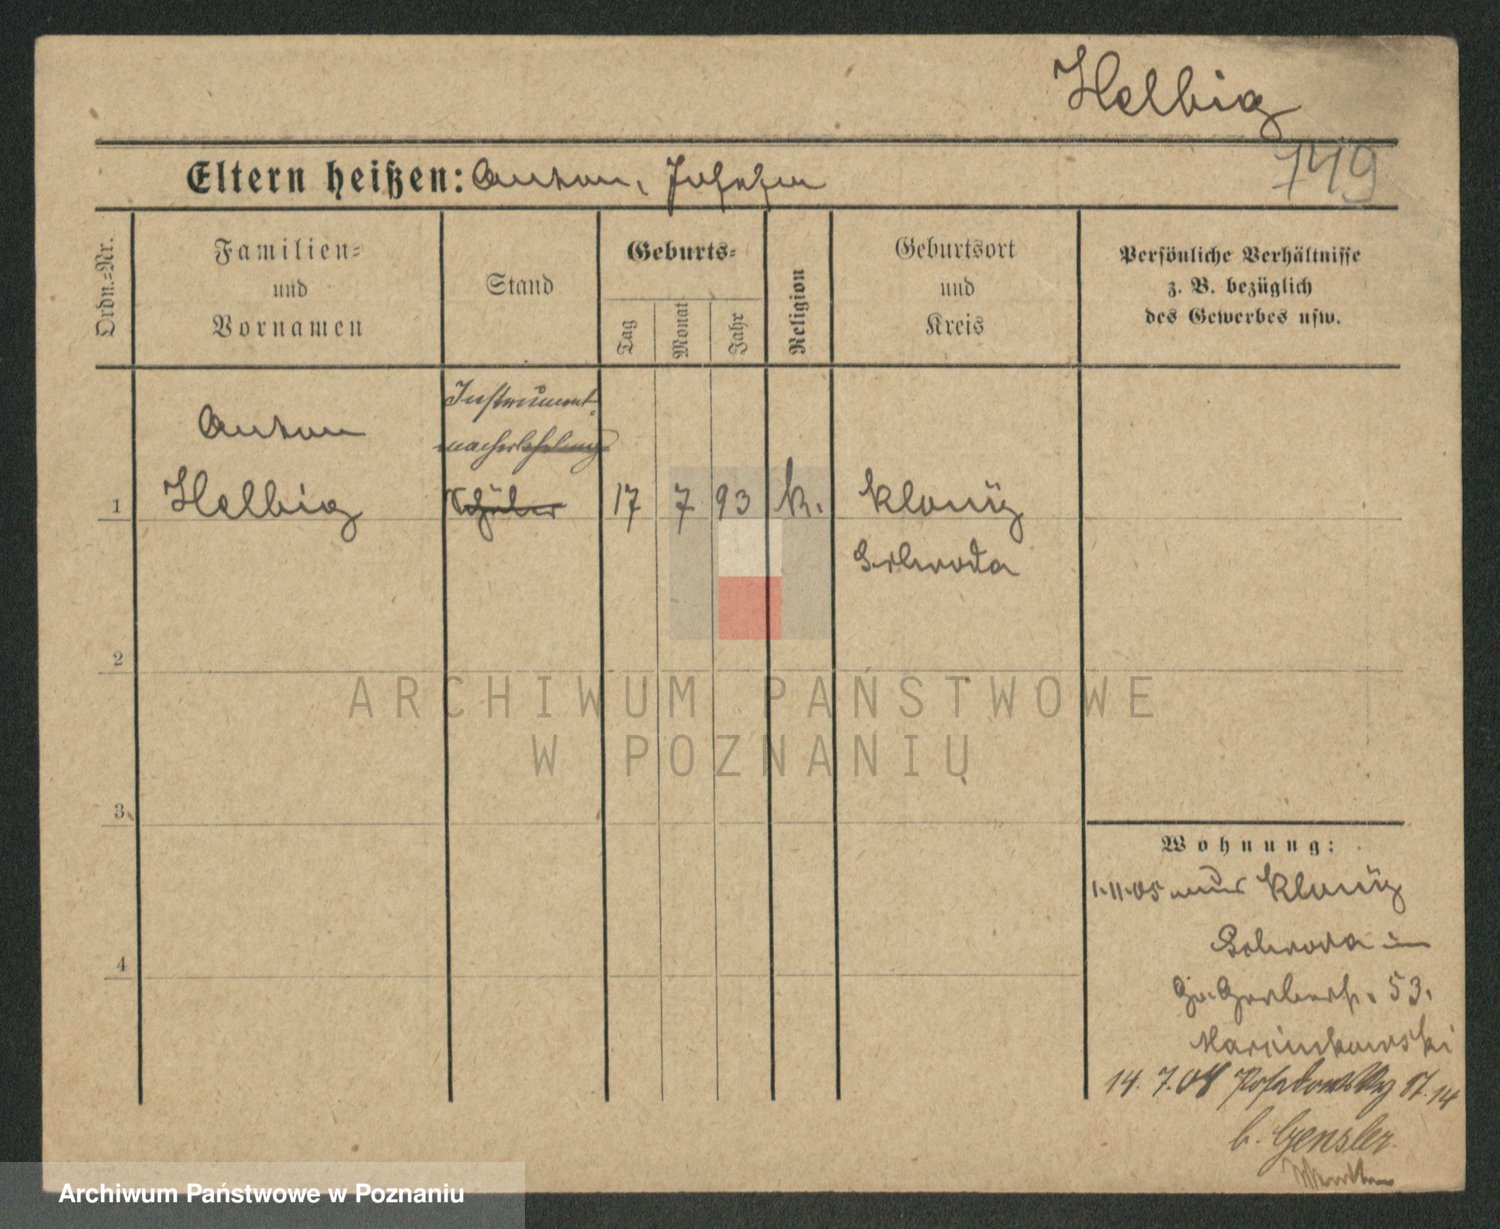 Helbig
749
Eltern heißen: Anton, Josefa
Ordn.-Nr.
Familien-
und
Vornamen
Stand
Geburts-
Tag
Monat
Jahr
Religion
Geburtsort
und
Kreis
Persönliche Verhältnisse
z. B. bezüglich
des Gewerbes usw.
Anton
Helbig
Instrument-
macherlehrling
Schüler
1
17
7
93
k.
Klony
Schroda
2
3
4
Wohnung:
1.11.05 aus Klony
Schroda in
Gr. Gerberstr. 53.
Marcinkowski
14. 7. 08 Posadowsky St. 14
b. Gensler
ARCHIWUM PAŃSTWOWE
W POZNANIU
Archiwum Państwowe w Poznaniu